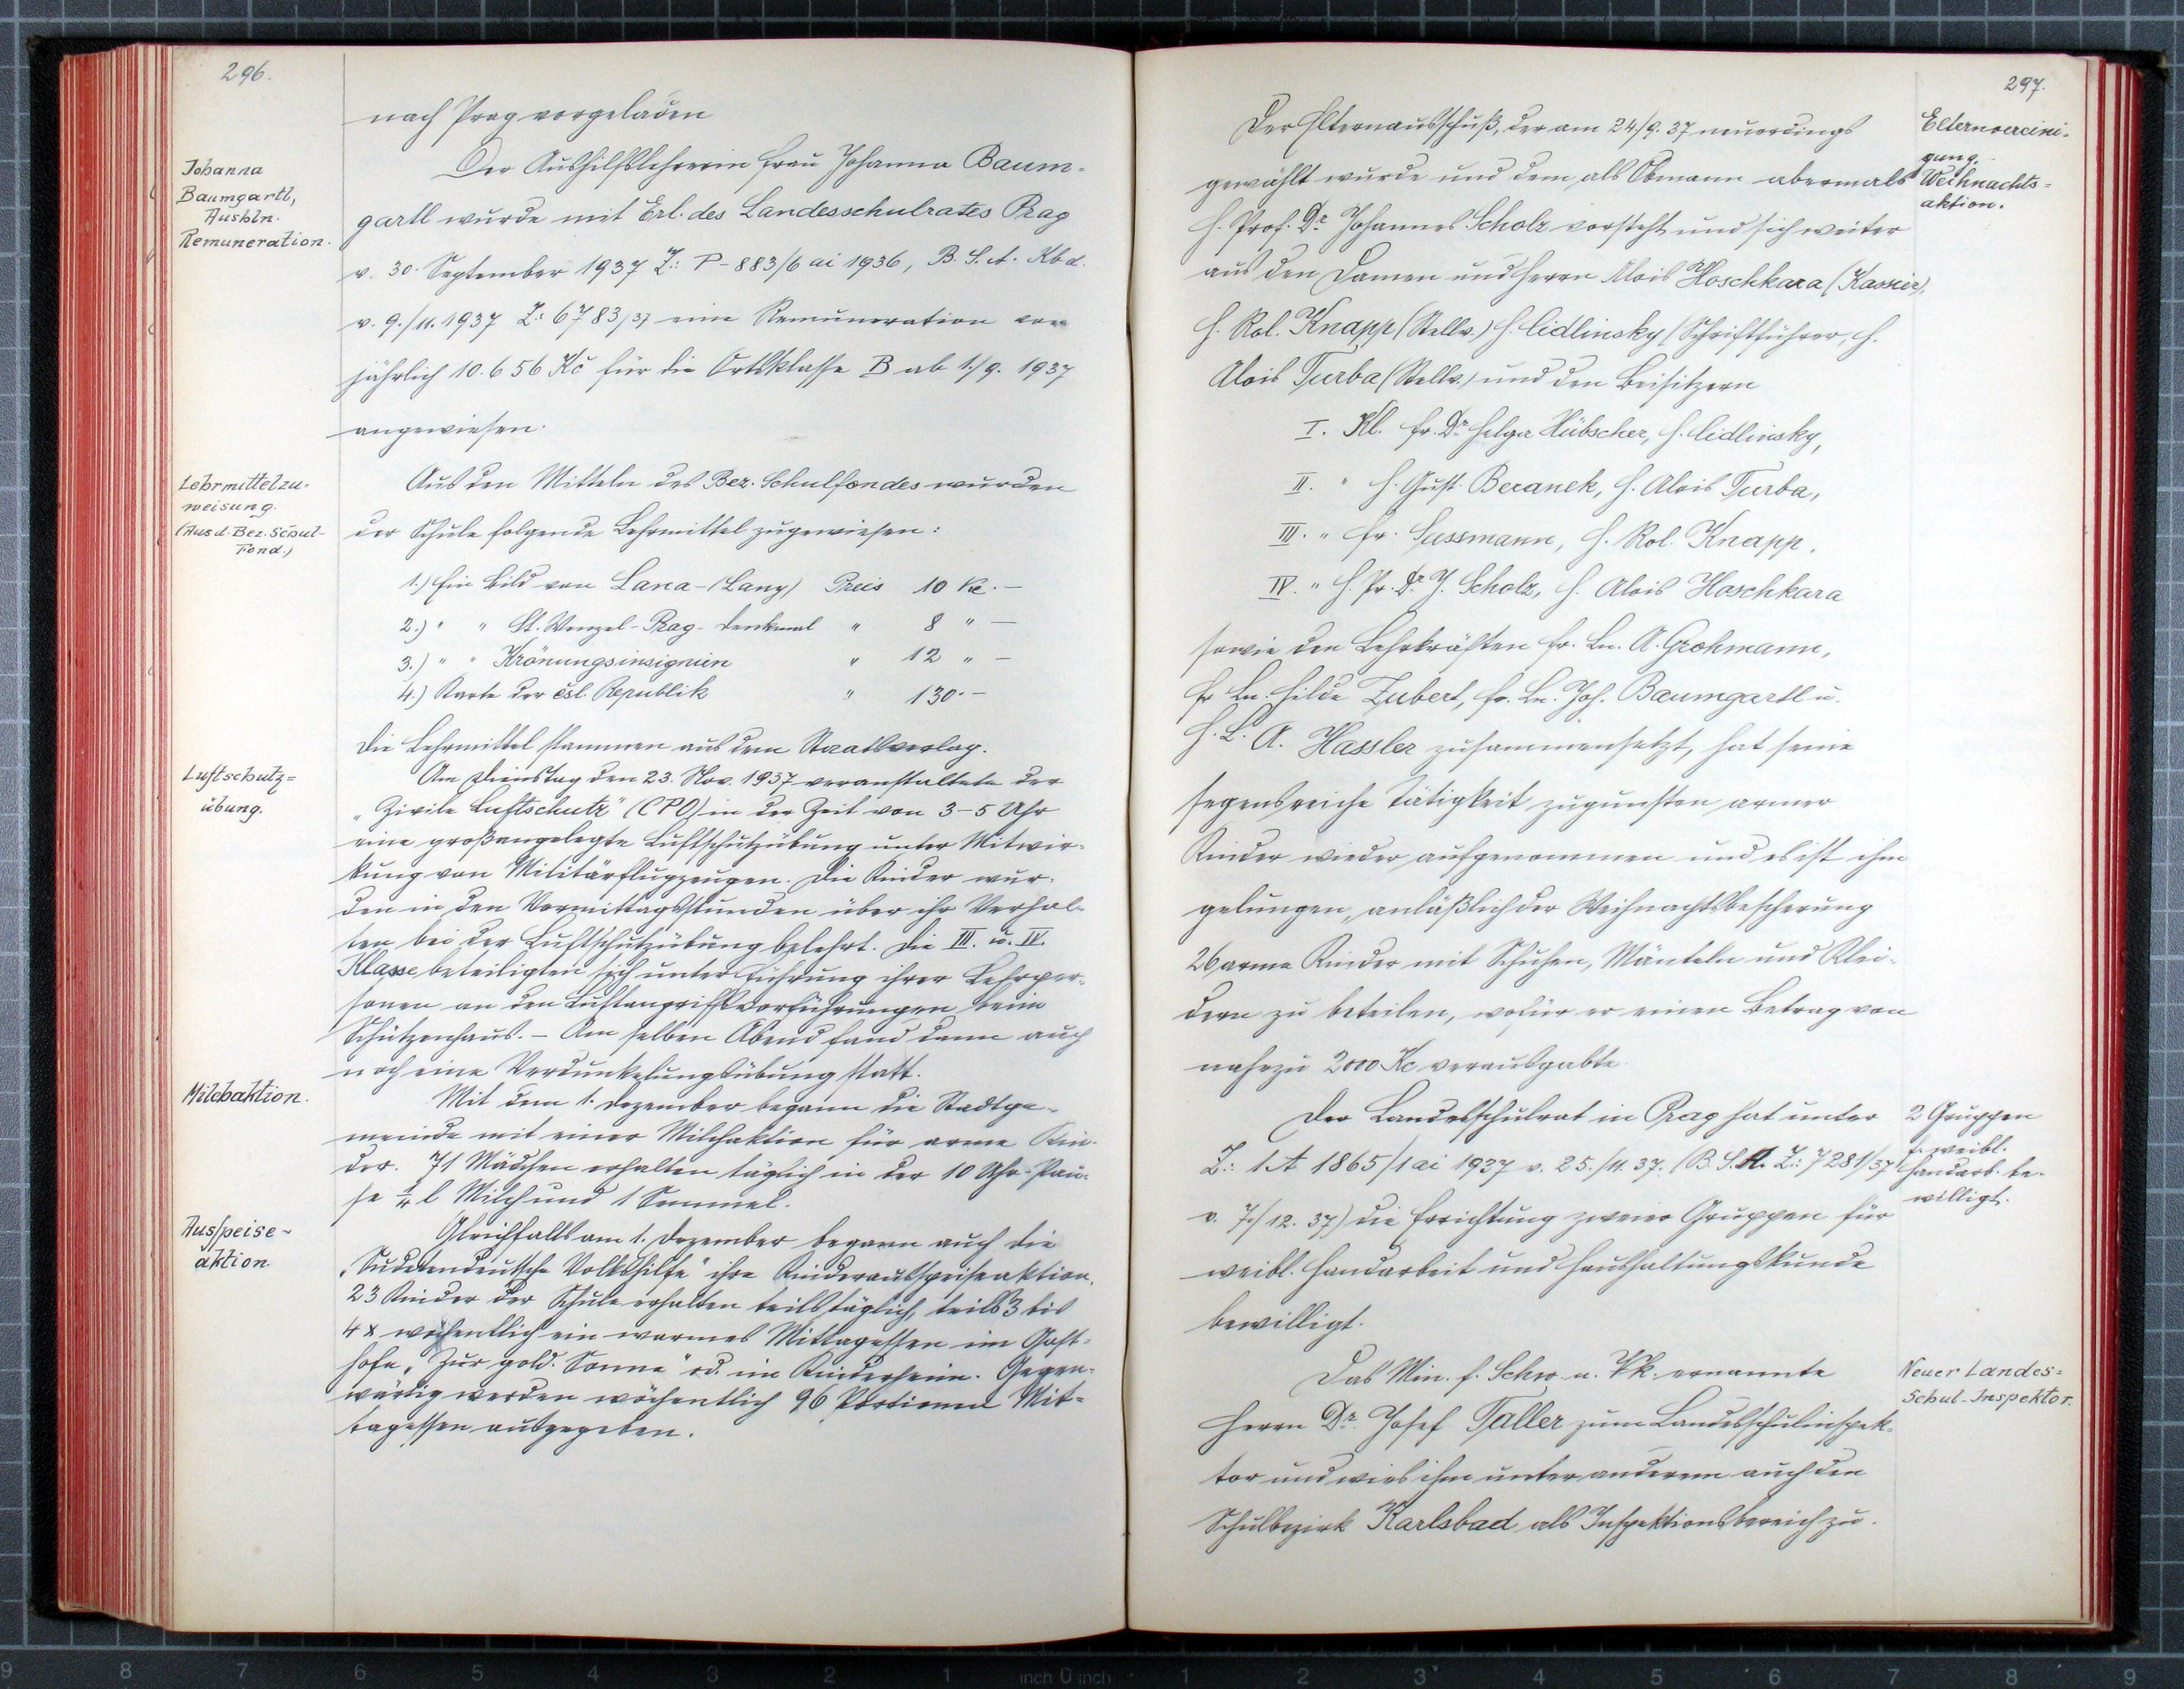 296.
nach Prag vorgeladen
Johanna
Baumgartl,
Aushln.
Remuneration.
Der Aushilfslehrerin Frau Johanna Baum-
gartl wurde mit Erl. des Landesschulrates Prag
v. 30. September 1937 Z.: P-883/6 ai 1936, B. S. A. Kbd.
v. 9./11. 1937 Z: 6783/37 eine Remuneration von
jährlich 10.656 Kč für die Ortsklasse B ab 1./9. 1937
angewiesen.
Lehrmittelzu-
weisung.
(Aus d. Bez. Schul-
Fond.)
Aus den Mitteln des Bez. Schulfondes wurden
der Schule folgende Lehrmittel zugewiesen:
1.) Ein Bild von Lana-(Lany) Preis 10 Kc.-
2.) " " St. Wenzel-Prag-Denkmal " 8 " -
3.) " " Krönungsinsignien " 12 " -
4.) Karte der čsl. Republik " 130.-
Die Lehrmittel stammen aus dem Staatsverlag.
Luftschutz=
übung.
Am Dienstag den 23. Nov. 1937 veranstaltete der
„Zivile Luftschutz" (CPO) in der Zeit von 3-5 Uhr
eine großangelegte Luftschutzübung unter Mitwir-
kung von Militärflugzeugen. Die Kinder wur-
den in den Vormittagsstunden über ihr Verhal-
ten bei der Luftschutzübung belehrt. Die III. u. IV.
Klasse beteiligten sich unter Führung ihrer Lehrper-
sonen an den Luftangriffsvorführungen beim
Schützenhaus. - Am selben Abend fand dann auch
noch eine Verdunkelungsübung statt.
Milchaktion.
Mit dem 1. Dezember begann die Stadtge-
meinde mit einer Milchaktion für arme Kin-
der. 71 Mädchen erhalten täglich in der 10 Uhr-Pau-
se ¼ l Milch und 1 Semmel.
Ausspeise-
aktion.
Gleichfalls am 1. Dezember begann auch die
„Sudetendeutsche Volkshilfe" ihre Kinderausspeiseaktion.
23 Kinder der Schule erhalten teils täglich, teils 3 bis
4 x wöchentlich ein warmes Mittagessen im Gast-
hofe „Zur gold. Sonne" od. im Kinderheim. Gegen-
wärtig werden wöchentlich 96 Portionen Mit-
tagessen ausgegeben.
297.
Elternvereini-
gung.
Weihnachts=
aktion.
Der Elternausschuß, der am 24./9. 37 neuerdings
gewählt wurde und dem als Obmann abermals
H. Prof. Dr. Johannes Scholz vorsteht und sich weiter
aus den Damen und Herrn Alois Hoschkara (Kassier),
H. Rol. Knapp (Stellv.) H. Cidlinsky (Schriftführer, H.
Alois Turba (Stellv.) und den Beisitzern
I. Kl. Fr. Dr. Helga Hübscher, H. Cidlinsky,
II. " H. Gust. Beranek, H. Alois Turba,
III. " Fr. Sussmann, H. Rol. Knapp.
IV. " H. Pr. Dr. J. Scholz, H. Alois Hoschkara
sowie den Lehrkräften Fr. Ln. A. Grohmann,
Fr Ln. Hilde Zubert, Fr. Ln. Joh. Baumgartl u.
H. L. A. Hassler zusammensetzt, hat seine
segensreiche Tätigkeit zugunsten armer
Kinder wieder aufgenommen und es ist ihm
gelungen, anläßlich der Weihnachtsbescherung
26 arme Kinder mit Schuhen, Mänteln und Klei-
dern zu beteilen, wofür er einen Betrag von
nahezu 2000 Kc verausgabte.
2 Gruppen
f. weibl.
Handarb. be-
willigt.
Der Landesschulrat in Prag hat unter
Z.: 1 A 1865/1 ai 1937 v. 25./11. 37. (B. S. A. Z.: 7281/37
v. 7./12. 37) die Errichtung zweier Gruppen für
weibl. Handarbeit und Haushaltungskunde
bewilligt.
Neuer Landes=
Schul-Inspektor.
Das Min. f. Schw. u. Vk. ernannte
Herrn Dr. Josef Taller zum Landesschulinspek-
tor und wies ihm unter anderem auch den
Schulbezirk Karlsbad als Inspektionsbereich zu.
9 8 7 6 5 4 3 2 1 inch 0 inch 1 2 3 4 5 6 7 8 9